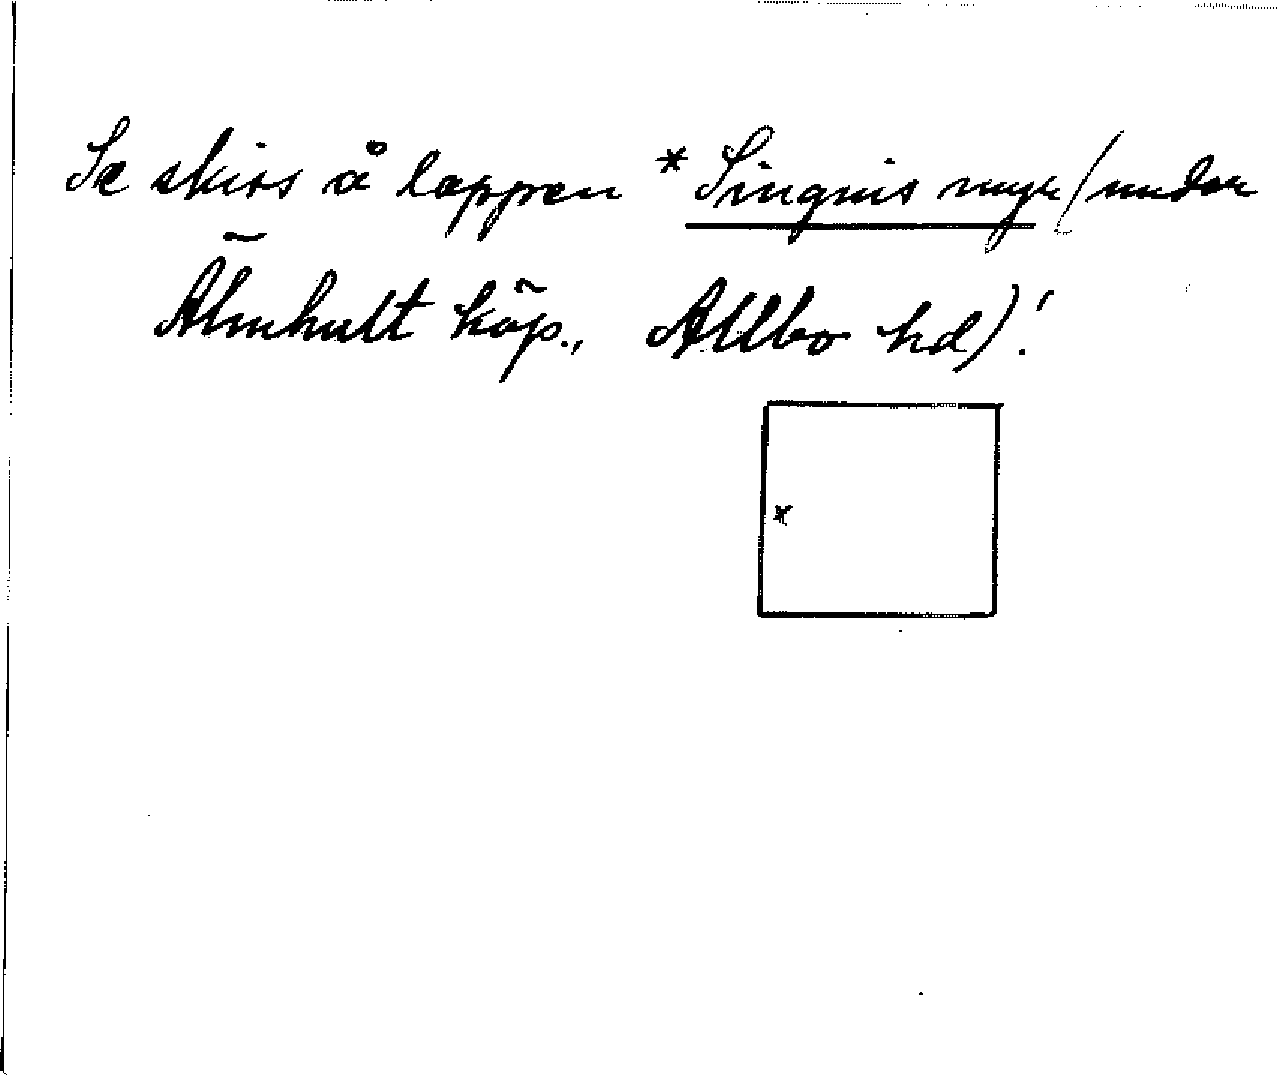 Se skiss å lappen * Singnis myr (under
Älmhult köp., Allbo hd)!
*